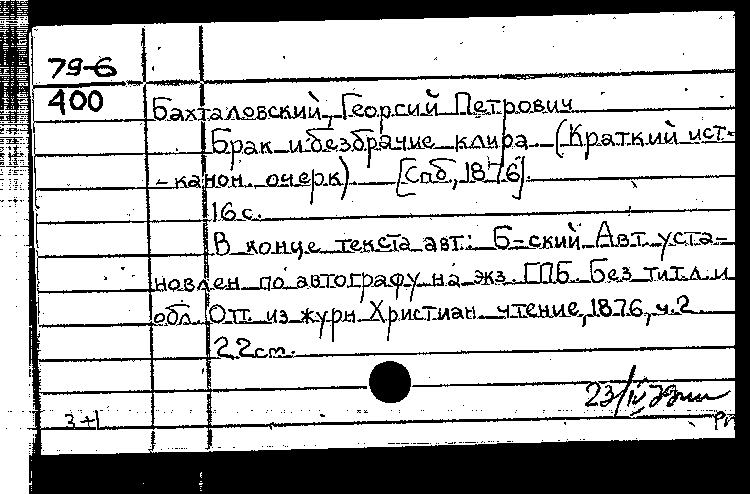 79-6
400
Бахталовский, Георгий Петрович
Брак и безбрачие клира (Краткий ист-
-канон. очерк) [Спб, 1876].
16 с.
В конце текста авт: Б-ский Авт уста-
новлен по автографу на экз. ГПБ. Без тит.л и
обл. Отт. из журн Христиан. чтение, 1876, ч.2.
22 cm.
23/IV
3+1